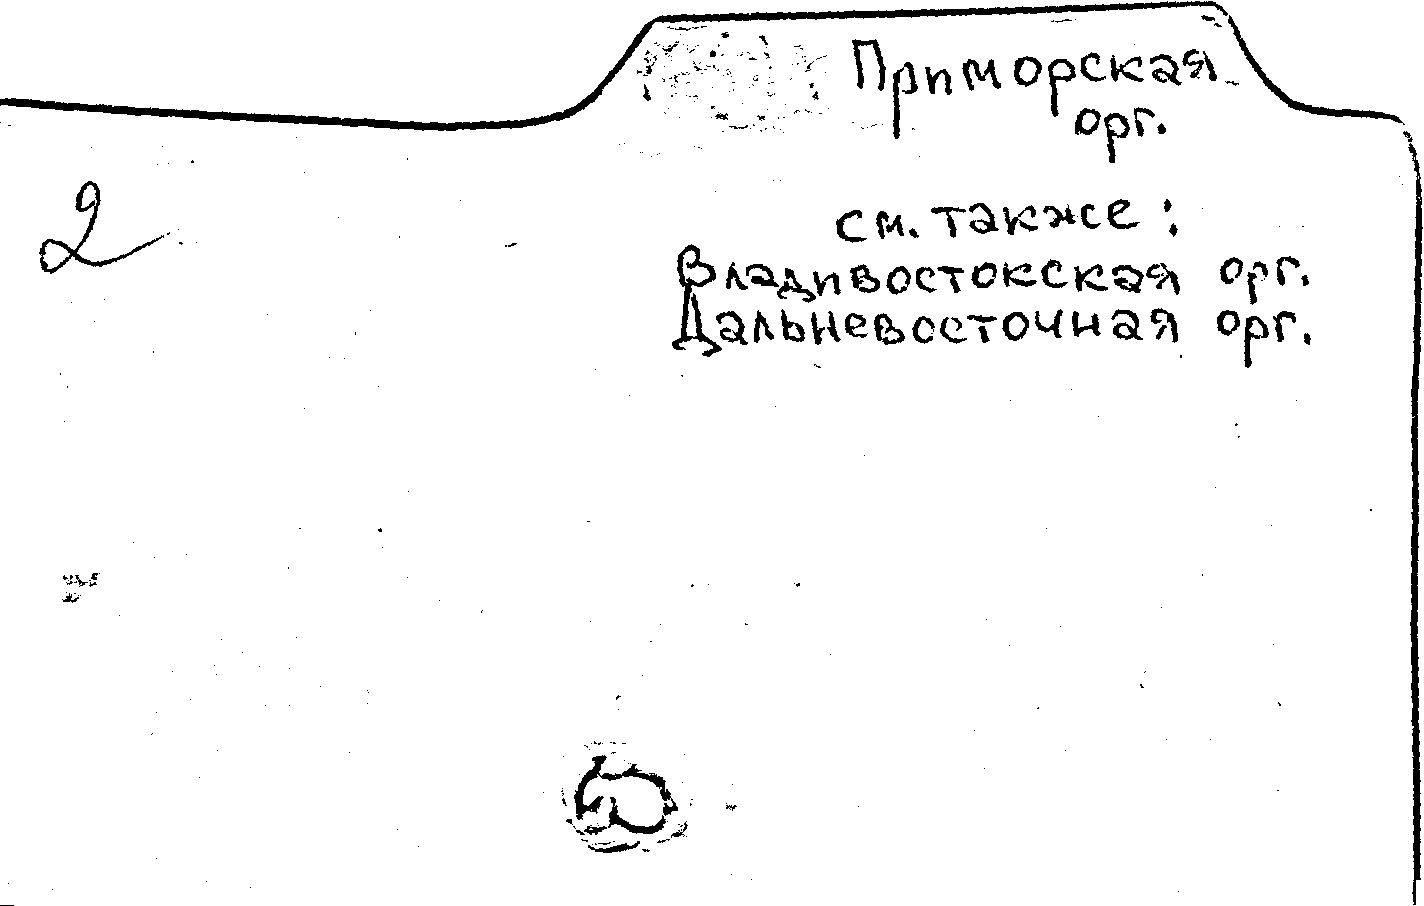 Приморская
орг.
2
см. также:
Владивостокская орг.
Дальневосточная орг.